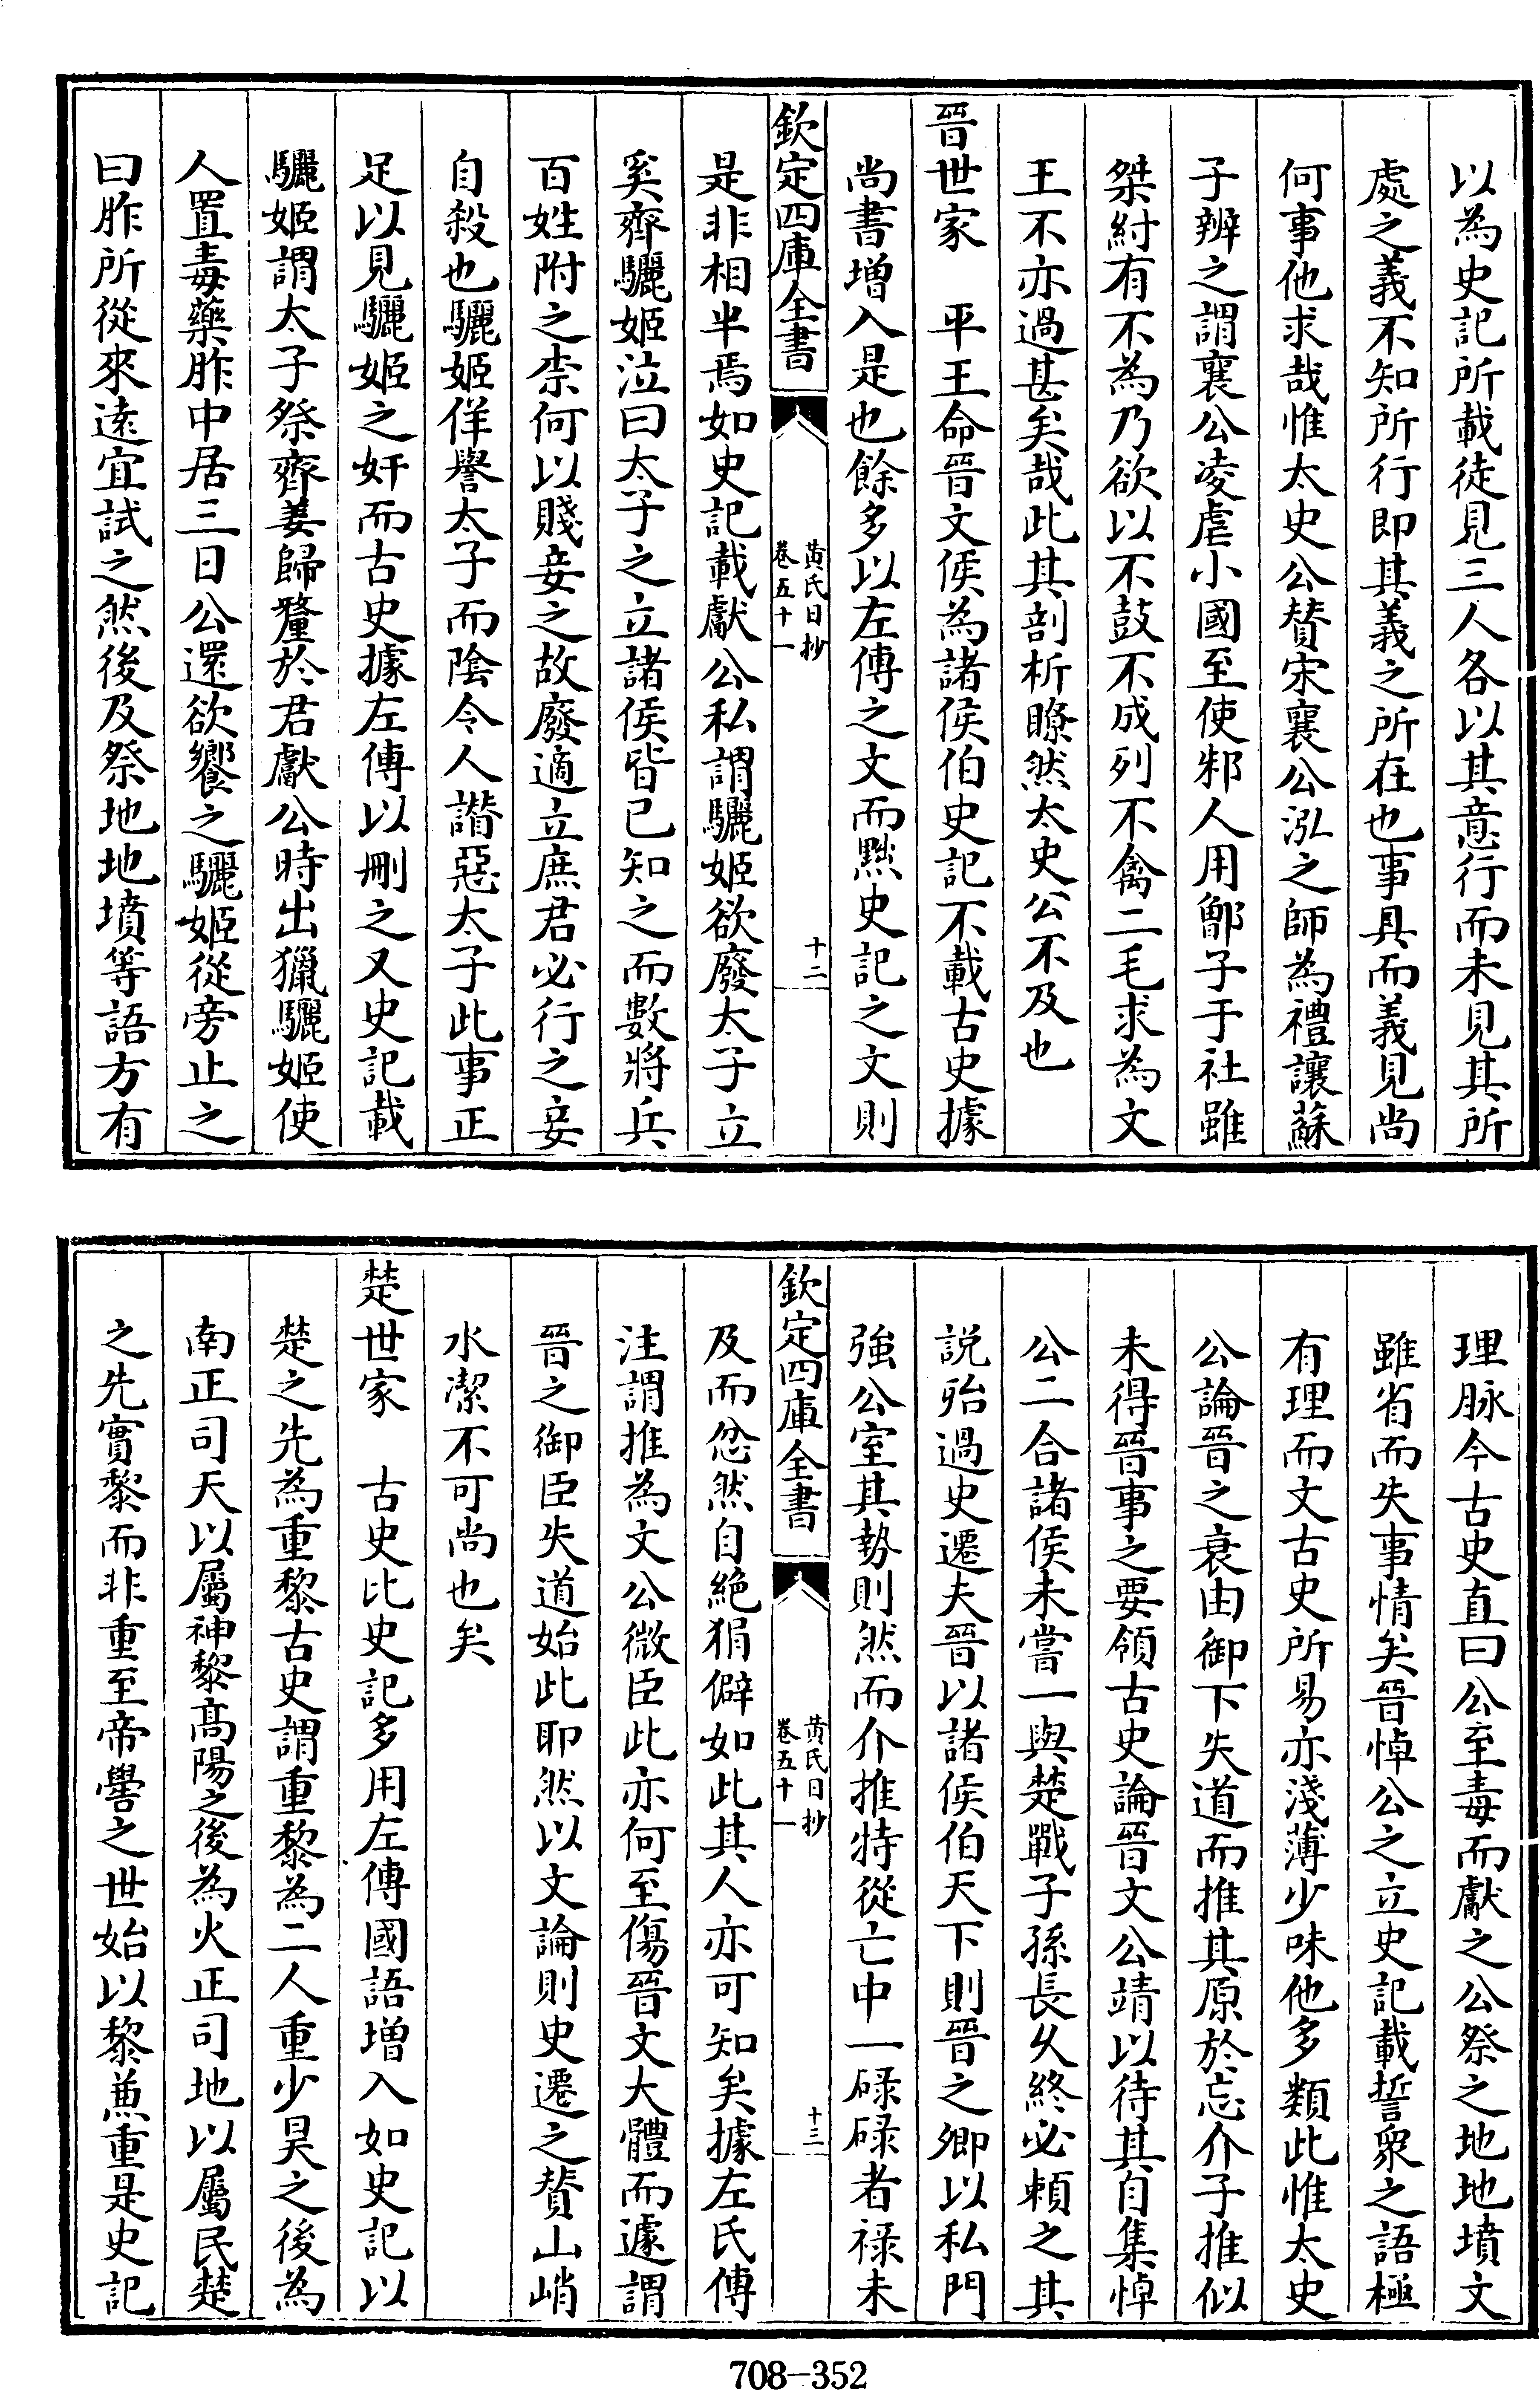 以為史記所載徒見三人各以其意行而未見其所
處之義不知所行即其義之所在也事具而義見尚
何事他求哉惟太史公贊宋襄公泓之師為禮讓蘇
子辨之謂襄公凌虐小國至使邾人用鄫子于社雖
桀紂有不為乃欲以不鼓不成列不禽二毛求為文
王不亦過甚矣哉此其剖析瞭然太史公不及也
晉世家　平王命晉文侯為諸侯伯史記不載古史據
尚書增入是也餘多以左傳之文而黜史記之文則
欽定四庫全書
黃氏日抄
卷五十一
十二
是非相半焉如史記載獻公私謂驪姬欲廢太子立
奚齊驪姬泣曰太子之立諸侯皆已知之而數將兵
百姓附之柰何以賤妾之故廢適立庶君必行之妾
自殺也驪姬佯譽太子而陰令人譖惡太子此事正
足以見驪姬之奸而古史據左傳以刪之又史記載
驪姬謂太子祭齊姜歸釐於君獻公時出獵驪姬使
人置毒藥胙中居三日公還欲饗之驪姬從旁止之
曰胙所從來遠宜試之然後及祭地地墳等語方有
理脉今古史直曰公至毒而獻之公祭之地地墳文
雖省而失事情矣晉悼公之立史記載誓衆之語極
有理而文古史所易亦淺薄少味他多類此惟太史
公論晉之衰由御下失道而推其原於忘介子推似
未得晉事之要領古史論晉文公靖以待其自集悼
公二合諸侯未嘗一與楚戰子孫長久終必頼之其
説殆過史遷夫晉以諸侯伯天下則晉之卿以私門
強公室其勢則然而介推特從亡中一碌碌者祿未
欽定四庫全書
黃氏日抄
卷五十一
十三
及而忿然自絶狷僻如此其人亦可知矣據左氏傳
注謂推為文公微臣此亦何至傷晉文大體而遽謂
晉之御臣失道始此耶然以文論則史遷之贊山峭
水潔不可尚也矣
楚世家　古史比史記多用左傳國語增入如史記以
楚之先為重黎古史謂重黎為二人重少昊之後為
南正司天以屬神黎髙陽之後為火正司地以屬民楚
之先實黎而非重至帝嚳之世始以黎兼重是史記
708-352